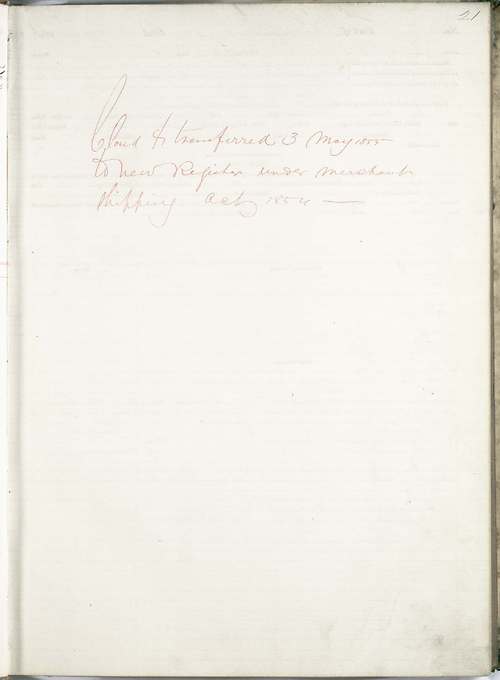 21
Closed & transferred 3 May 1855
to new Register under Merchant
Shipping Act 1854 —